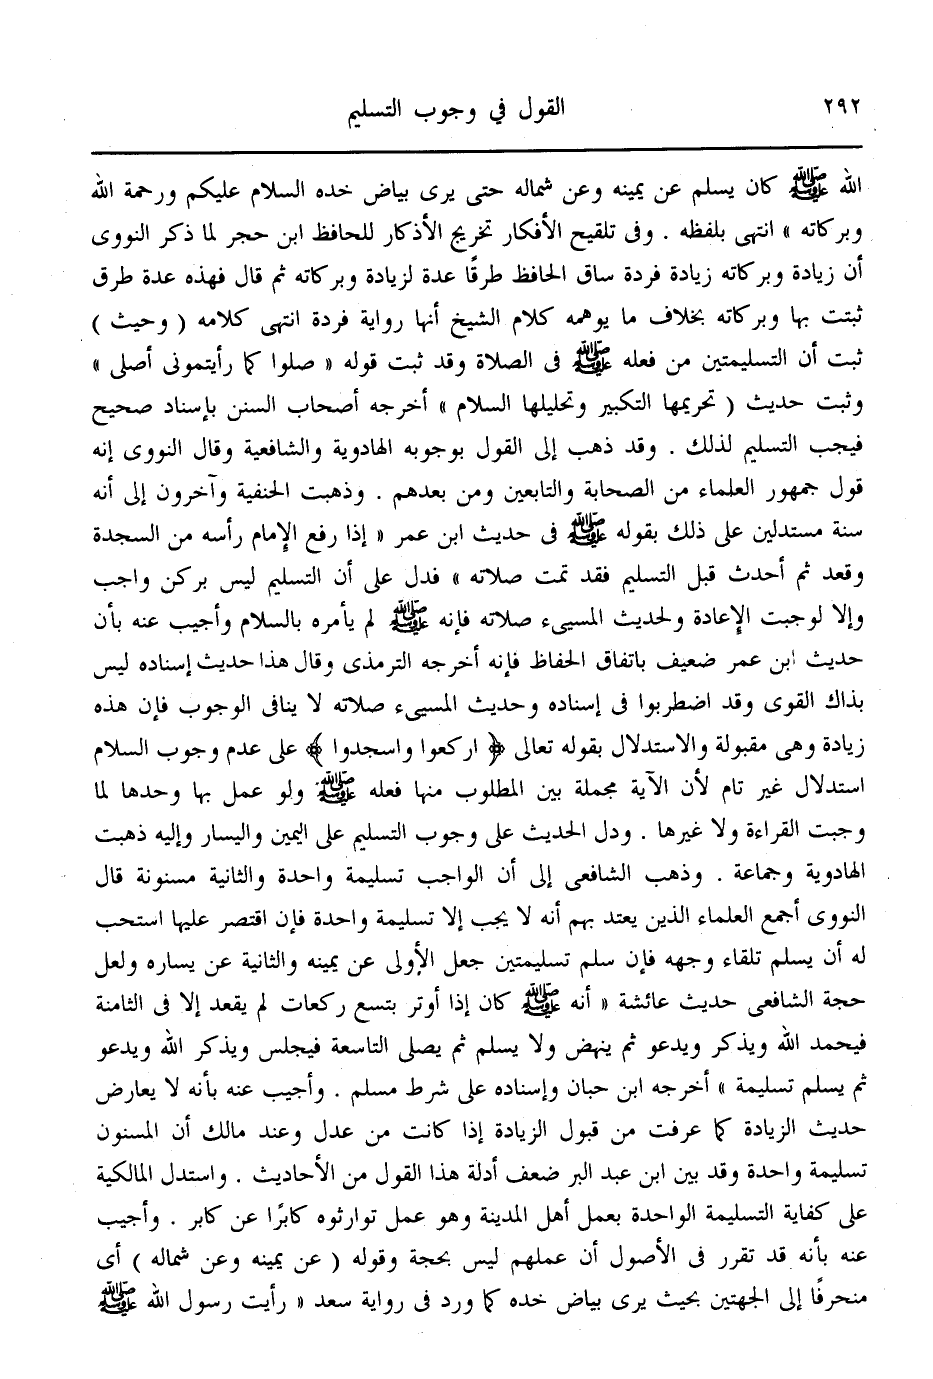 ٢٩٢ القول في وجوب التسليم
الله ﷺ كان يسلم عن يمينه وعن شماله حتى يرى بياض خده السلام عليكم ورحمة الله
وبركاته » انتهى بلفظه . وفى تلقيح الأفكار تخريج الأذكار للحافظ ابن حجر لما ذكر النووى
أن زيادة وبركاته زيادة فردة ساق الحافظ طرقًا عدة لزيادة وبركاته ثم قال فهذه عدة طرق
ثبتت بها وبركاته بخلاف ما يوهمه كلام الشيخ أنها رواية فردة انتهى كلامه ( وحيث )
ثبت أن التسليمتين من فعله ﷺ فى الصلاة وقد ثبت قوله « صلوا كما رأيتمونى أصلى »
وثبت حديث ( تحريمها التكبير وتحليلها السلام » أخرجه أصحاب السنن بإسناد صحيح
فيجب التسليم لذلك . وقد ذهب إلى القول بوجوبه الهادوية والشافعية وقال النووى إنه
قول جمهور العلماء من الصحابة والتابعين ومن بعدهم . وذهبت الحنفية وآخرون إلى أنه
سنة مستدلين على ذلك بقوله ﷺ فى حديث ابن عمر « إذا رفع الإمام رأسه من السجدة
وقعد ثم أحدث قبل التسليم فقد تمت صلاته » فدل على أن التسليم ليس بركن واجب
وإلا لوجبت الإعادة ولحديث المسيىء صلاته فإنه ﷺ لم يأمره بالسلام وأجيب عنه بأن
حديث ابن عمر ضعيف باتفاق الحفاظ فإنه أخرجه الترمذى وقال هذا حديث إسناده ليس
بذاك القوى وقد اضطربوا فى إسناده وحديث المسيىء صلاته لا ينافى الوجوب فإن هذه
زيادة وهى مقبولة والاستدلال بقوله تعالى ﴿ اركعوا واسجدوا ﴾ على عدم وجوب السلام
استدلال غير تام لأن الآية مجملة بين المطلوب منها فعله ﷺ ولو عمل بها وحدها لما
وجبت القراءة ولا غيرها . ودل الحديث على وجوب التسليم على اليمين واليسار وإليه ذهبت
الهادوية وجماعة . وذهب الشافعى إلى أن الواجب تسليمة واحدة والثانية مسنونة قال
النووى أجمع العلماء الذين يعتد بهم أنه لا يجب إلا تسليمة واحدة فإن اقتصر عليها استحب
له أن يسلم تلقاء وجهه فإن سلم تسليمتين جعل الأولى عن يمينه والثانية عن يساره ولعل
حجة الشافعى حديث عائشة « أنه ﷺ كان إذا أوتر بتسع ركعات لم يقعد إلا فى الثامنة
فيحمد الله ويذكر ويدعو ثم ينهض ولا يسلم ثم يصلى التاسعة فيجلس ويذكر الله ويدعو
ثم يسلم تسليمة » أخرجه ابن حبان وإسناده على شرط مسلم . وأجيب عنه بأنه لا يعارض
حديث الزيادة كما عرفت من قبول الزيادة إذا كانت من عدل وعند مالك أن المسنون
تسليمة واحدة وقد بين ابن عبد البر ضعف أدلة هذا القول من الأحاديث . واستدل المالكية
على كفاية التسليمة الواحدة بعمل أهل المدينة وهو عمل توارثوه كابرًا عن كابر . وأجيب
عنه بأنه قد تقرر فى الأصول أن عملهم ليس بحجة وقوله ( عن يمينه وعن شماله ) أى
منحرفًا إلى الجهتين بحيث يرى بياض خده كما ورد فى رواية سعد « رأيت رسول الله ﷺ